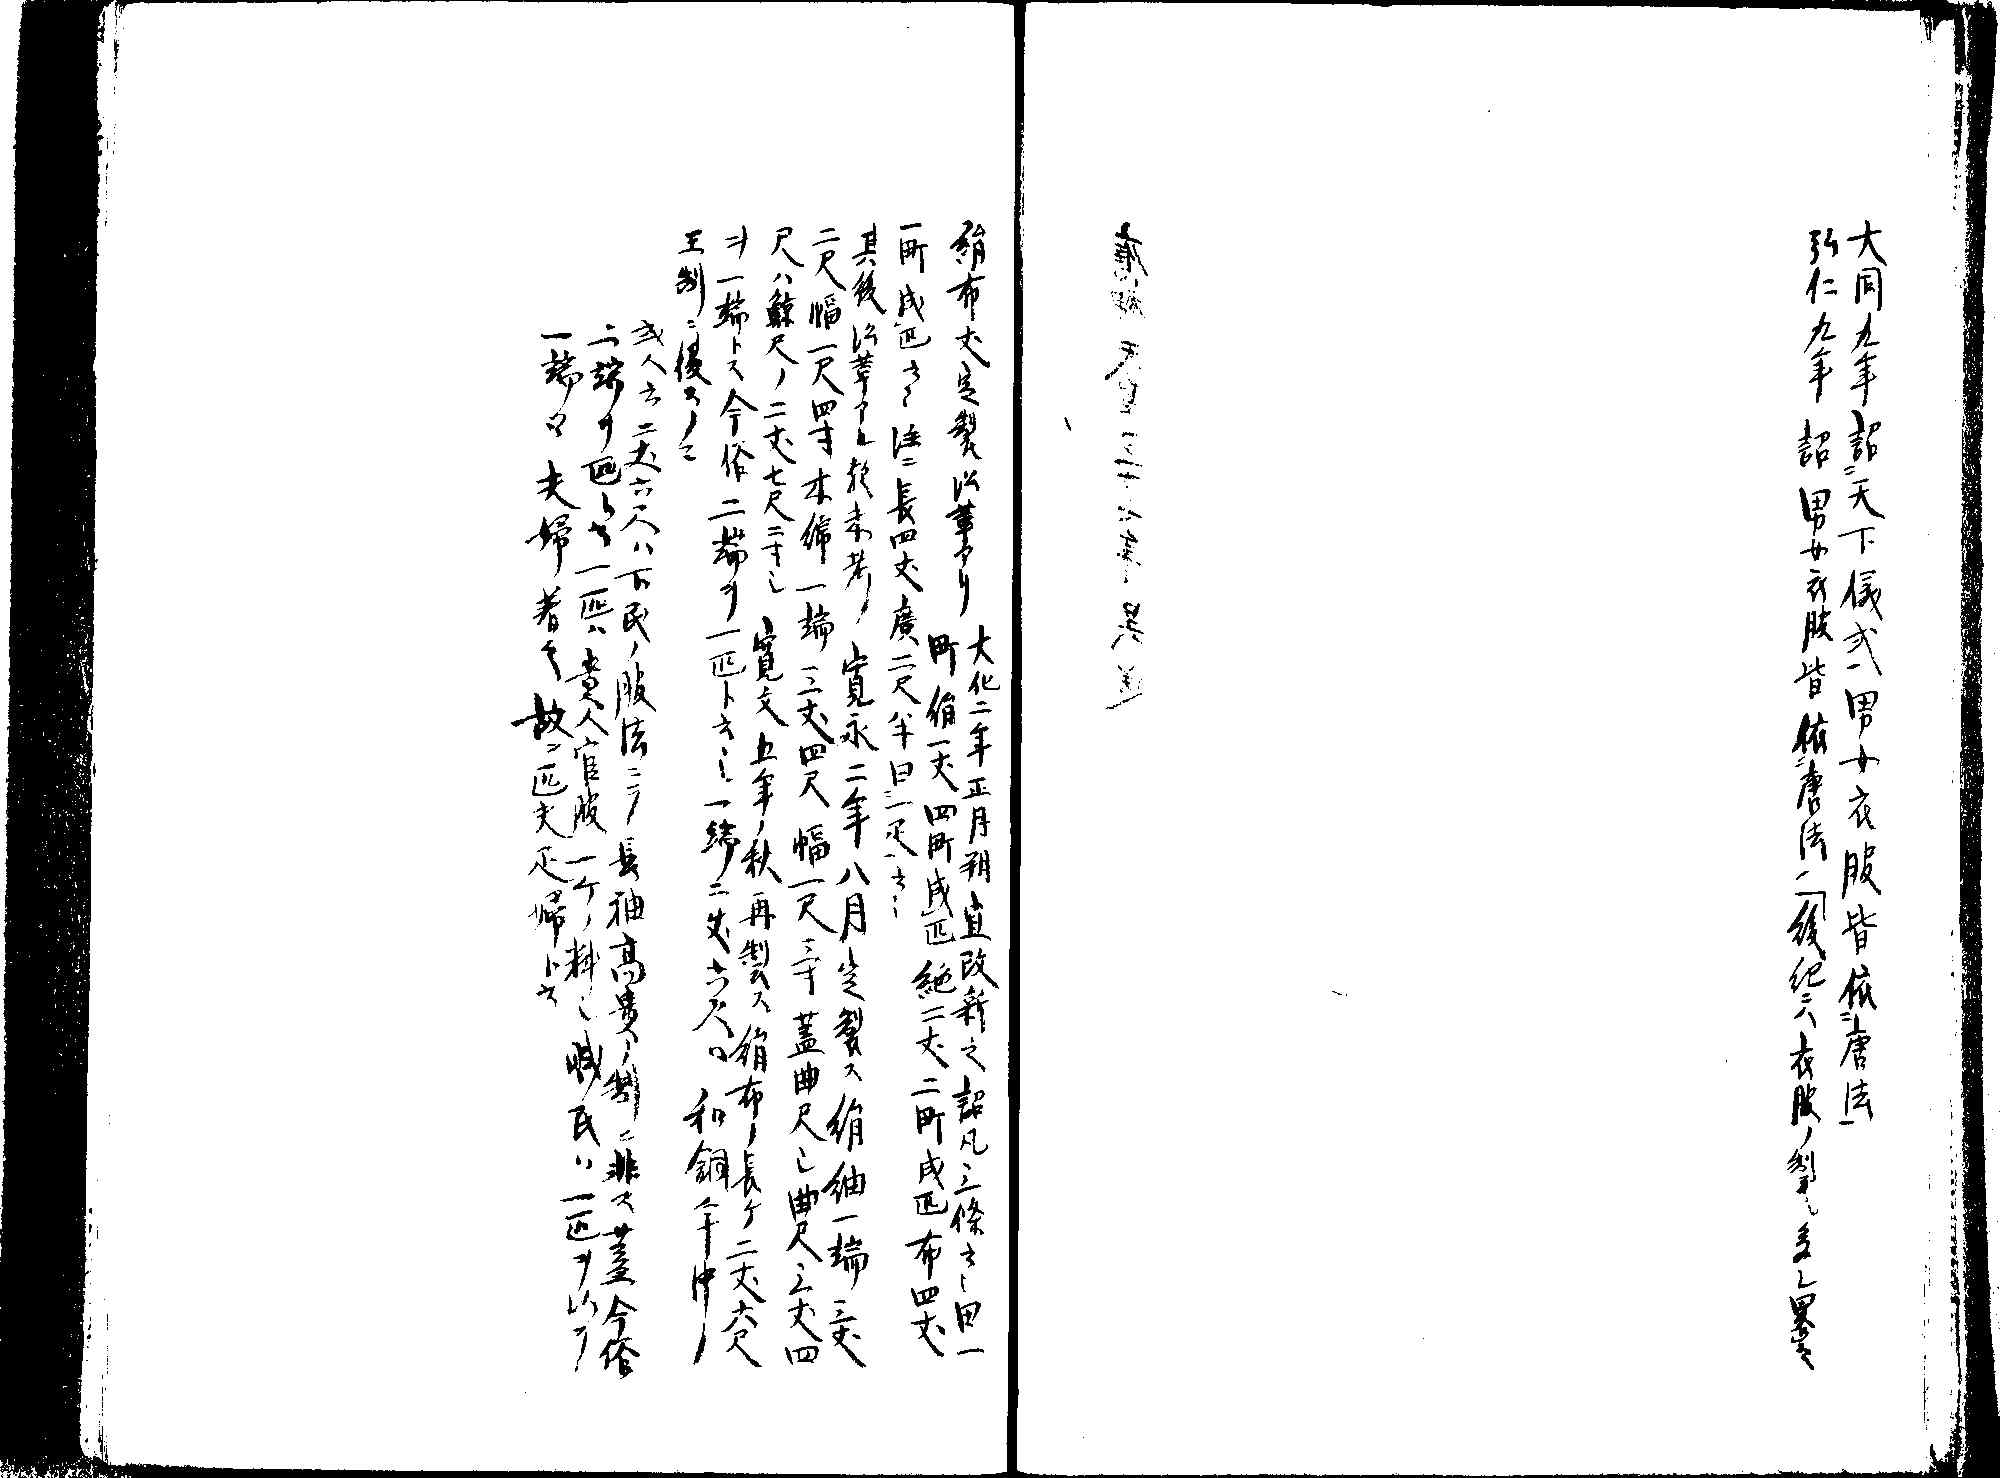 大同九年詔ニ天下儀式一男女衣服皆依ニ唐法一
弘仁九年詔男女衣服皆依ニ唐法一「後紀ニ六衣服ノ製
天皇三十 年
絹布丈定製沿革アリ 大化二年正月朔直改新之詔凡三條云々田一
町絹一丈四町成匹絁二丈二町成匹布四丈
一町成匹云々注ニ長四丈廣二尺半曰ニ一疋一云々
其後沿革アル於未考ノ寛永二年八月定製ス絹紬一端三丈
二尺幅一尺四寸木綿一端三丈四尺幅一尺三寸蓋曲尺也曲尺三丈四
尺ハ鯨尺ノ二丈七尺二寸也寛文五年ノ秋再製ス絹布ノ長ケ二丈六尺
ヲ一端トス今俗二端ヲ一匹ト云々一端ノ二丈六尺ハ和銅年中ノ
王制ニ復スノミ
或人云二丈六尺ハ下民ノ服法ニテ長袖高貴ノ制ニ非ス蓋今俗
二端ヲ匹 一匹ハ貴人官服一ケノ料也 民ハ一匹ヲ以テ
一端ツヽ夫婦着ス故ニ匹夫疋婦ト云